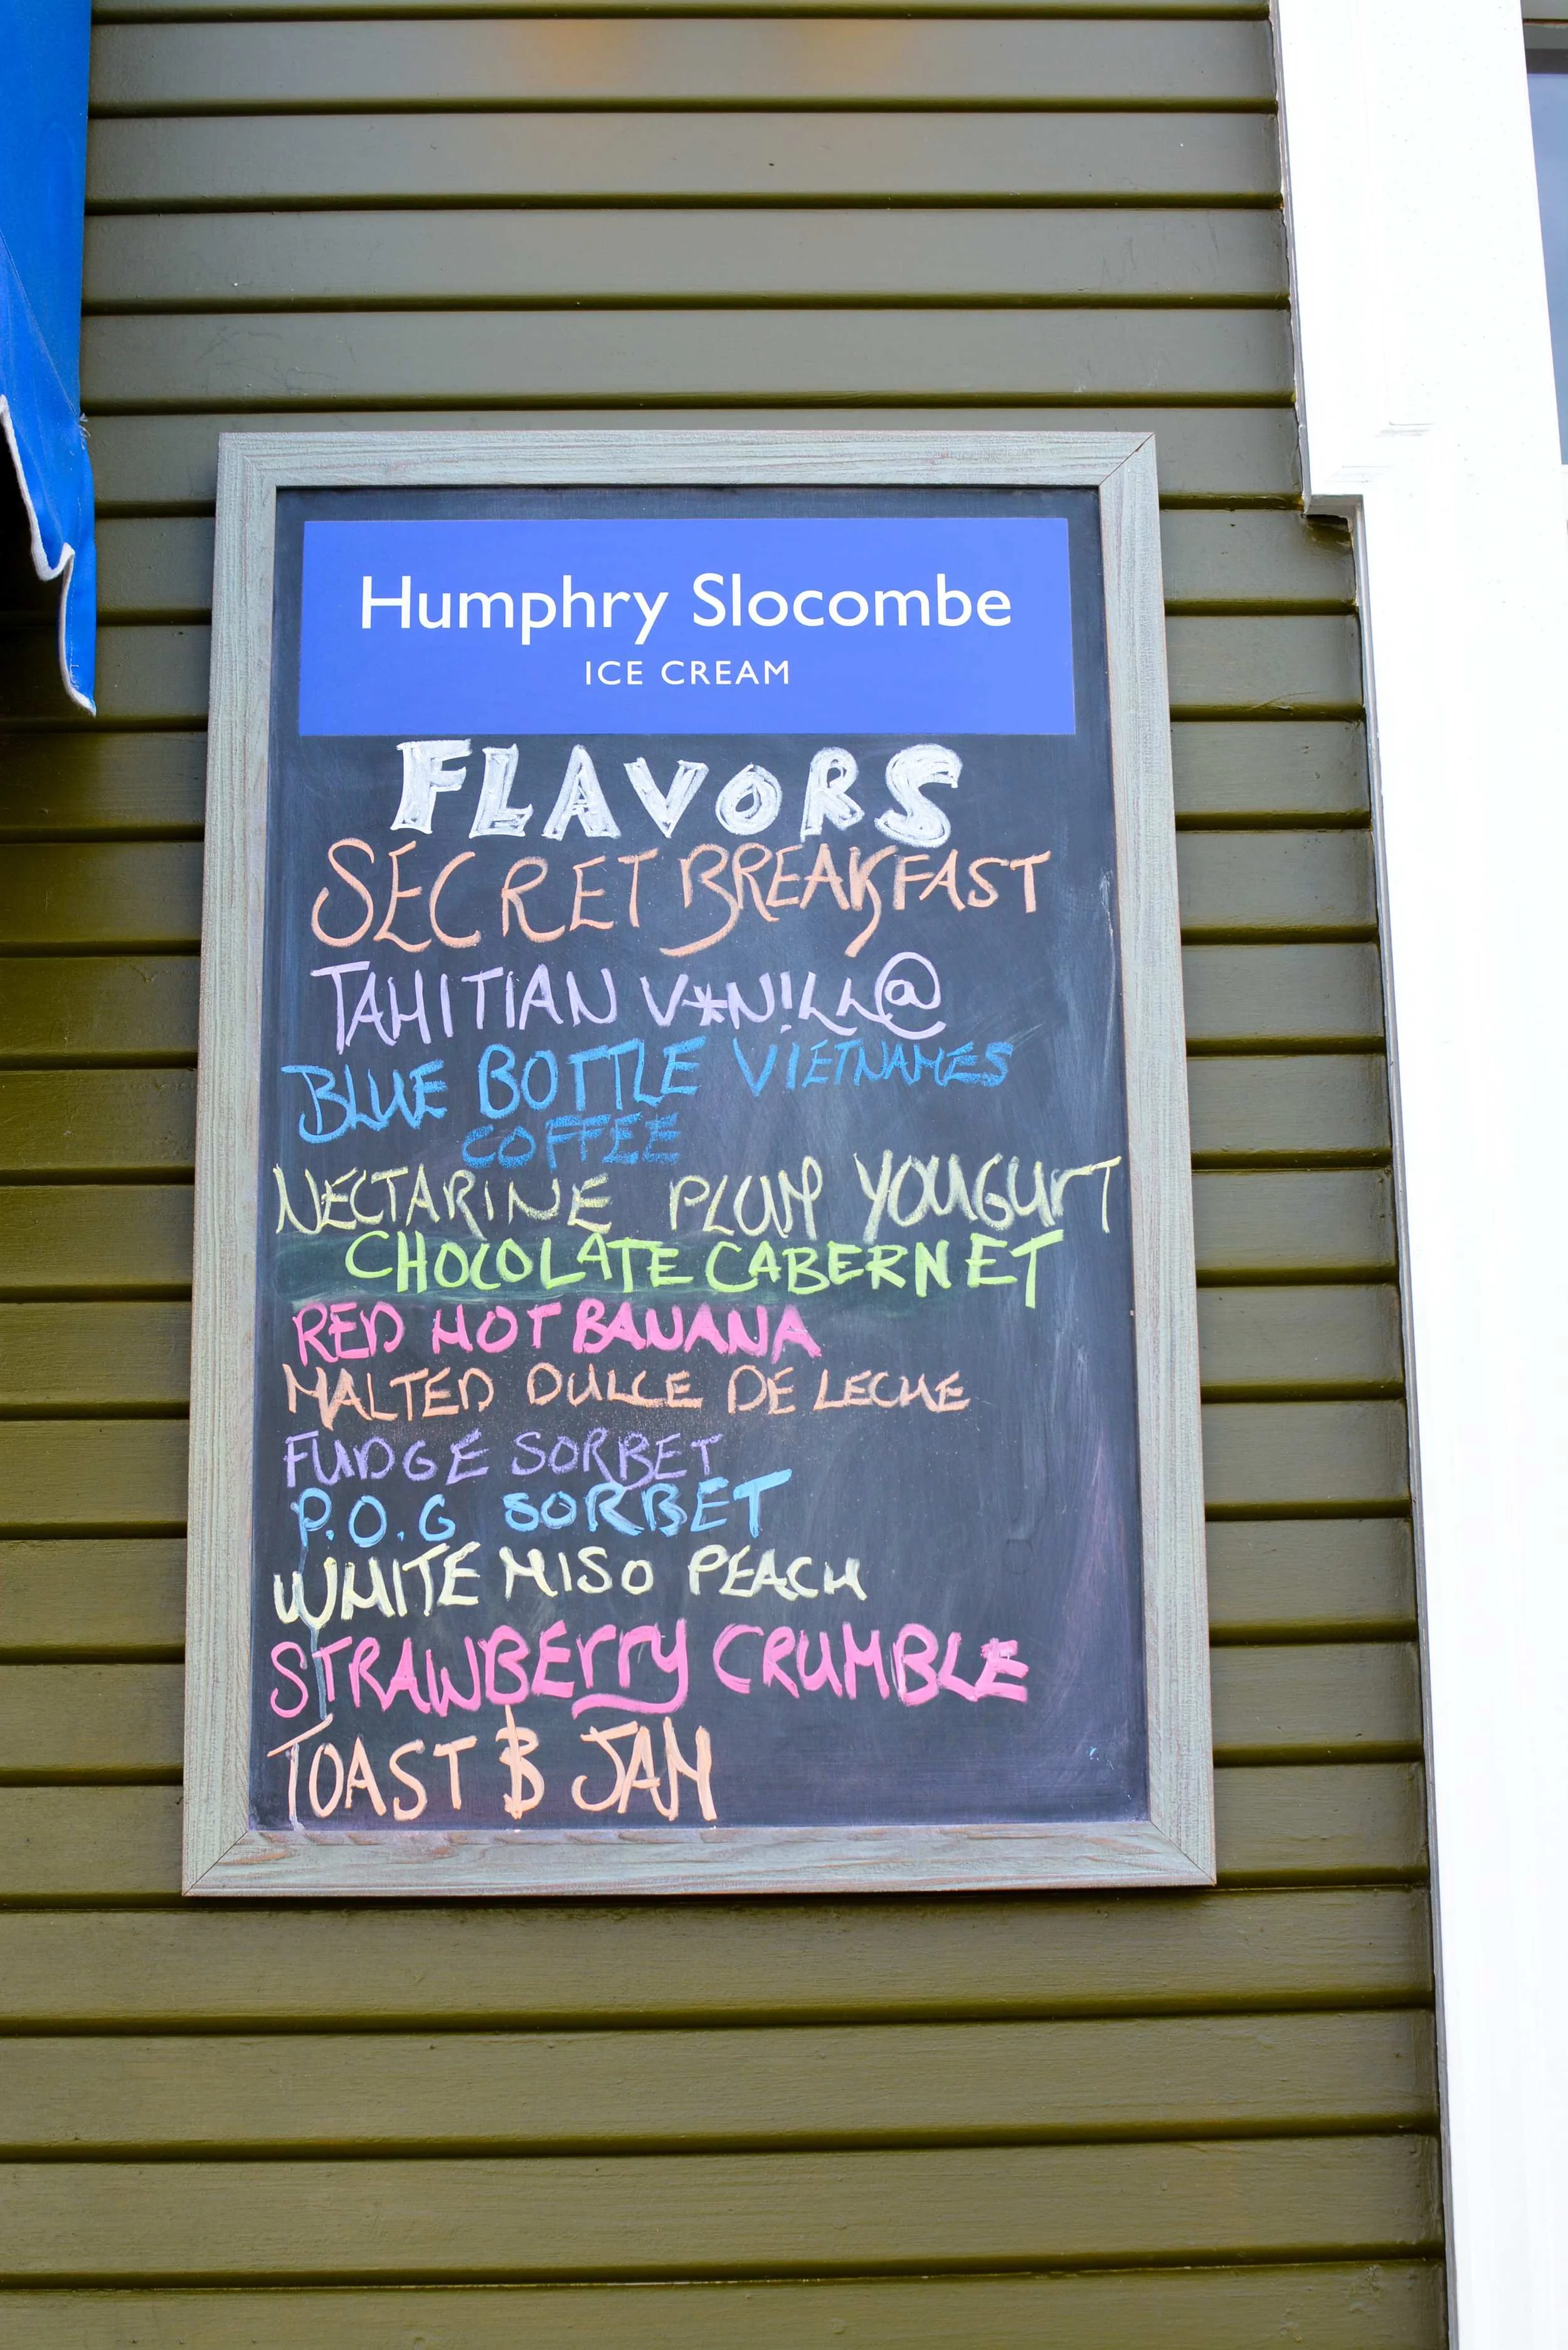 Humphry Slocombe
ICE CREAM
FLAVORS
SECRET BREAKFAST
TAHITIAN V*N!LL@
BLUE BOTTLE VIETNAMES
COFFEE
NECTARINE PLUM YOUGURT
CHOCOLATE CABERNET
RED HOT BANANA
MALTED DULCE DE LECHE
FUDGE SORBET
P.O.G SORBET
WHITE MISO PEACH
STRAWBErry CRUMBLE
TOAST & JAM